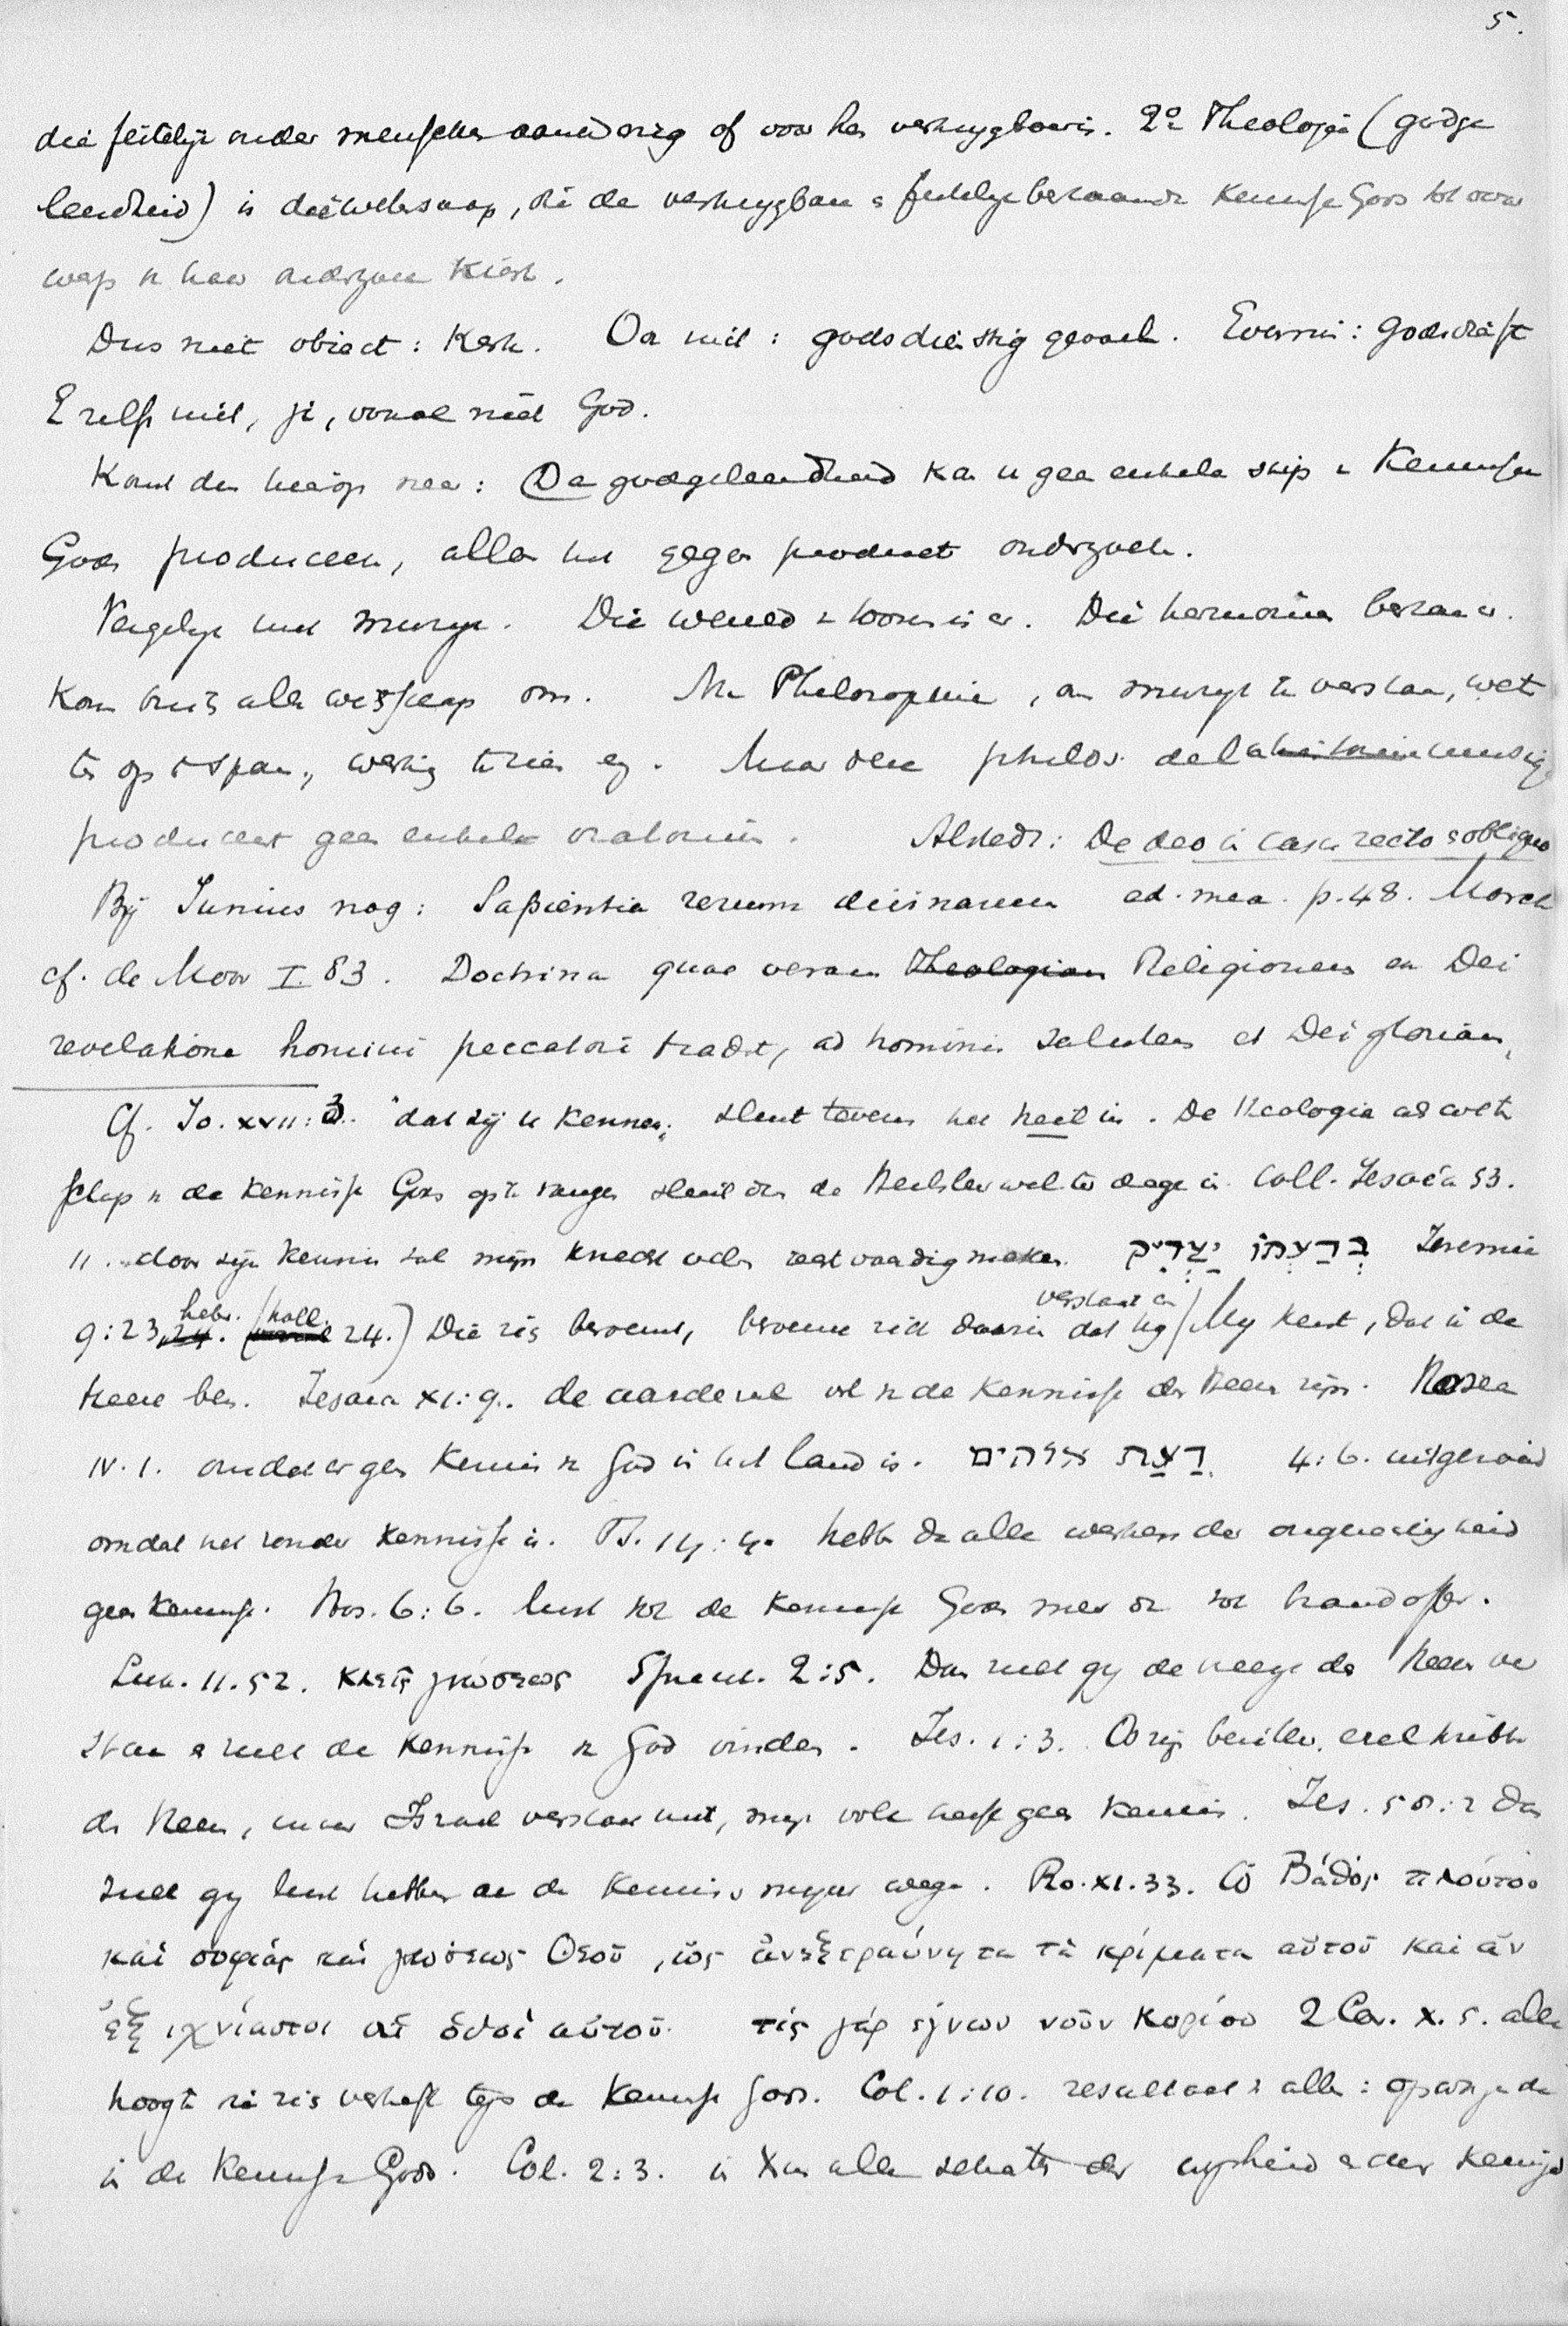 5.
die feitelijk onder menschen aanwezig of voor hen verkrijgbaar is. 2º Theologie (godge
leerdheid) is die wetensap, die de verkrijgbare & feitelijk bestaande Kennisse Gods tot voor
werp n haar onderzoek Kiest.
Dus niet object: Kerk. Ook niet: godsdienstig gevoel. Evenmin: godsdienst
Zelfs niet, ja, vooral niet God.
Komt dus hierop neer: De godgeleerdheid kan geen enkele Kennisse
Gods produceeren, alleen het gegeven product onderzoeken.
Vergelijk met muzyk. Die wereld toonen is er. Die harmonieen bestaan er.
Kom buiten alle wetschap om. Nu Philosophie, om muzyk te verstaan, wet
te op sporen, werking . Maar deze philos.
produceert geen enkele oratorium. Alsted: De deo in casu recto & obliquo
Bij Junius nog: Sapientia rerum divinarum ed. mea. p. 48. Marck
cf. de Moor I. 83. Doctrina quae veram Theologiam Religionem ex Dei
revelatione homini peccatori tradit, ad hominis salutem et Dei gloriam,
Cf. Jo. XVII:3. "dat zij U kennen; sluit tevens het heil in. De theologie als weten
schap n de Kennisse Gods op te vangen sluit dus de wel te dege in. Coll. Jesaia 53.
11. door zijn Kennis zal mijn Knecht velen rechtvaardig maken. בְּדַעְתּוֹ יַצְדִּיק Jeremia
9:23, 24. hebr. (holl. 24.) Die zig beroemt, beroeme zich daarin dat hij verstaat en My kent, dat ik de
Heere ben. Jesaia XI:9. de aarde zal vol n de Kennisse des Heeren zijn. Hosea
IV.1. omdat er geen Kennis n God in het land is. דַּעַת אלהים 4:6. uitgeroeid
omdat het zonder Kennisse is. Ps. 14:4. hebben dan alle werkers der ongerechtigheid
geen Kennisse. Hos. 6:6. lust tot de Kennisse Gods meer dan tot brandoffer.
Luk. 11.52. κλεῖς γνώσεως Spreuk. 2:5. Dan zult gy de vreeze des Heeren ver
staan & zult de Kennisse n God vinden. Jes. 1:3. Os zijn bezitter, ezel kribbe
des Heeren, maar Israel verstaat niet, mijn volk heeft geen Kennis. Jes. 58:2 Dan
zult gy lust hebben aan de Kennis myner wegen. Ro. XI.33. Ὦ Βάθος πλούτου
καὶ σοφίας καὶ γνώσεως Θεοῦ, ὡς ἀνεξεραύνητα τὰ κρίματα αὐτοῦ καὶ ἀν
εξιχνίαστοι αἱ ὁδοὶ αὐτοῦ. τίς γὰρ ἔγνων νοῦν Κυρίου 2 Cor. X. 5. alle
hoogte die zig verheft tegen de Kennisse Gods. Col. 1:10. resultaat n alles: opwassende
in de Kennisse Gods. Col. 2:3. in Xus alle schatten der wysheid & der Kennisse